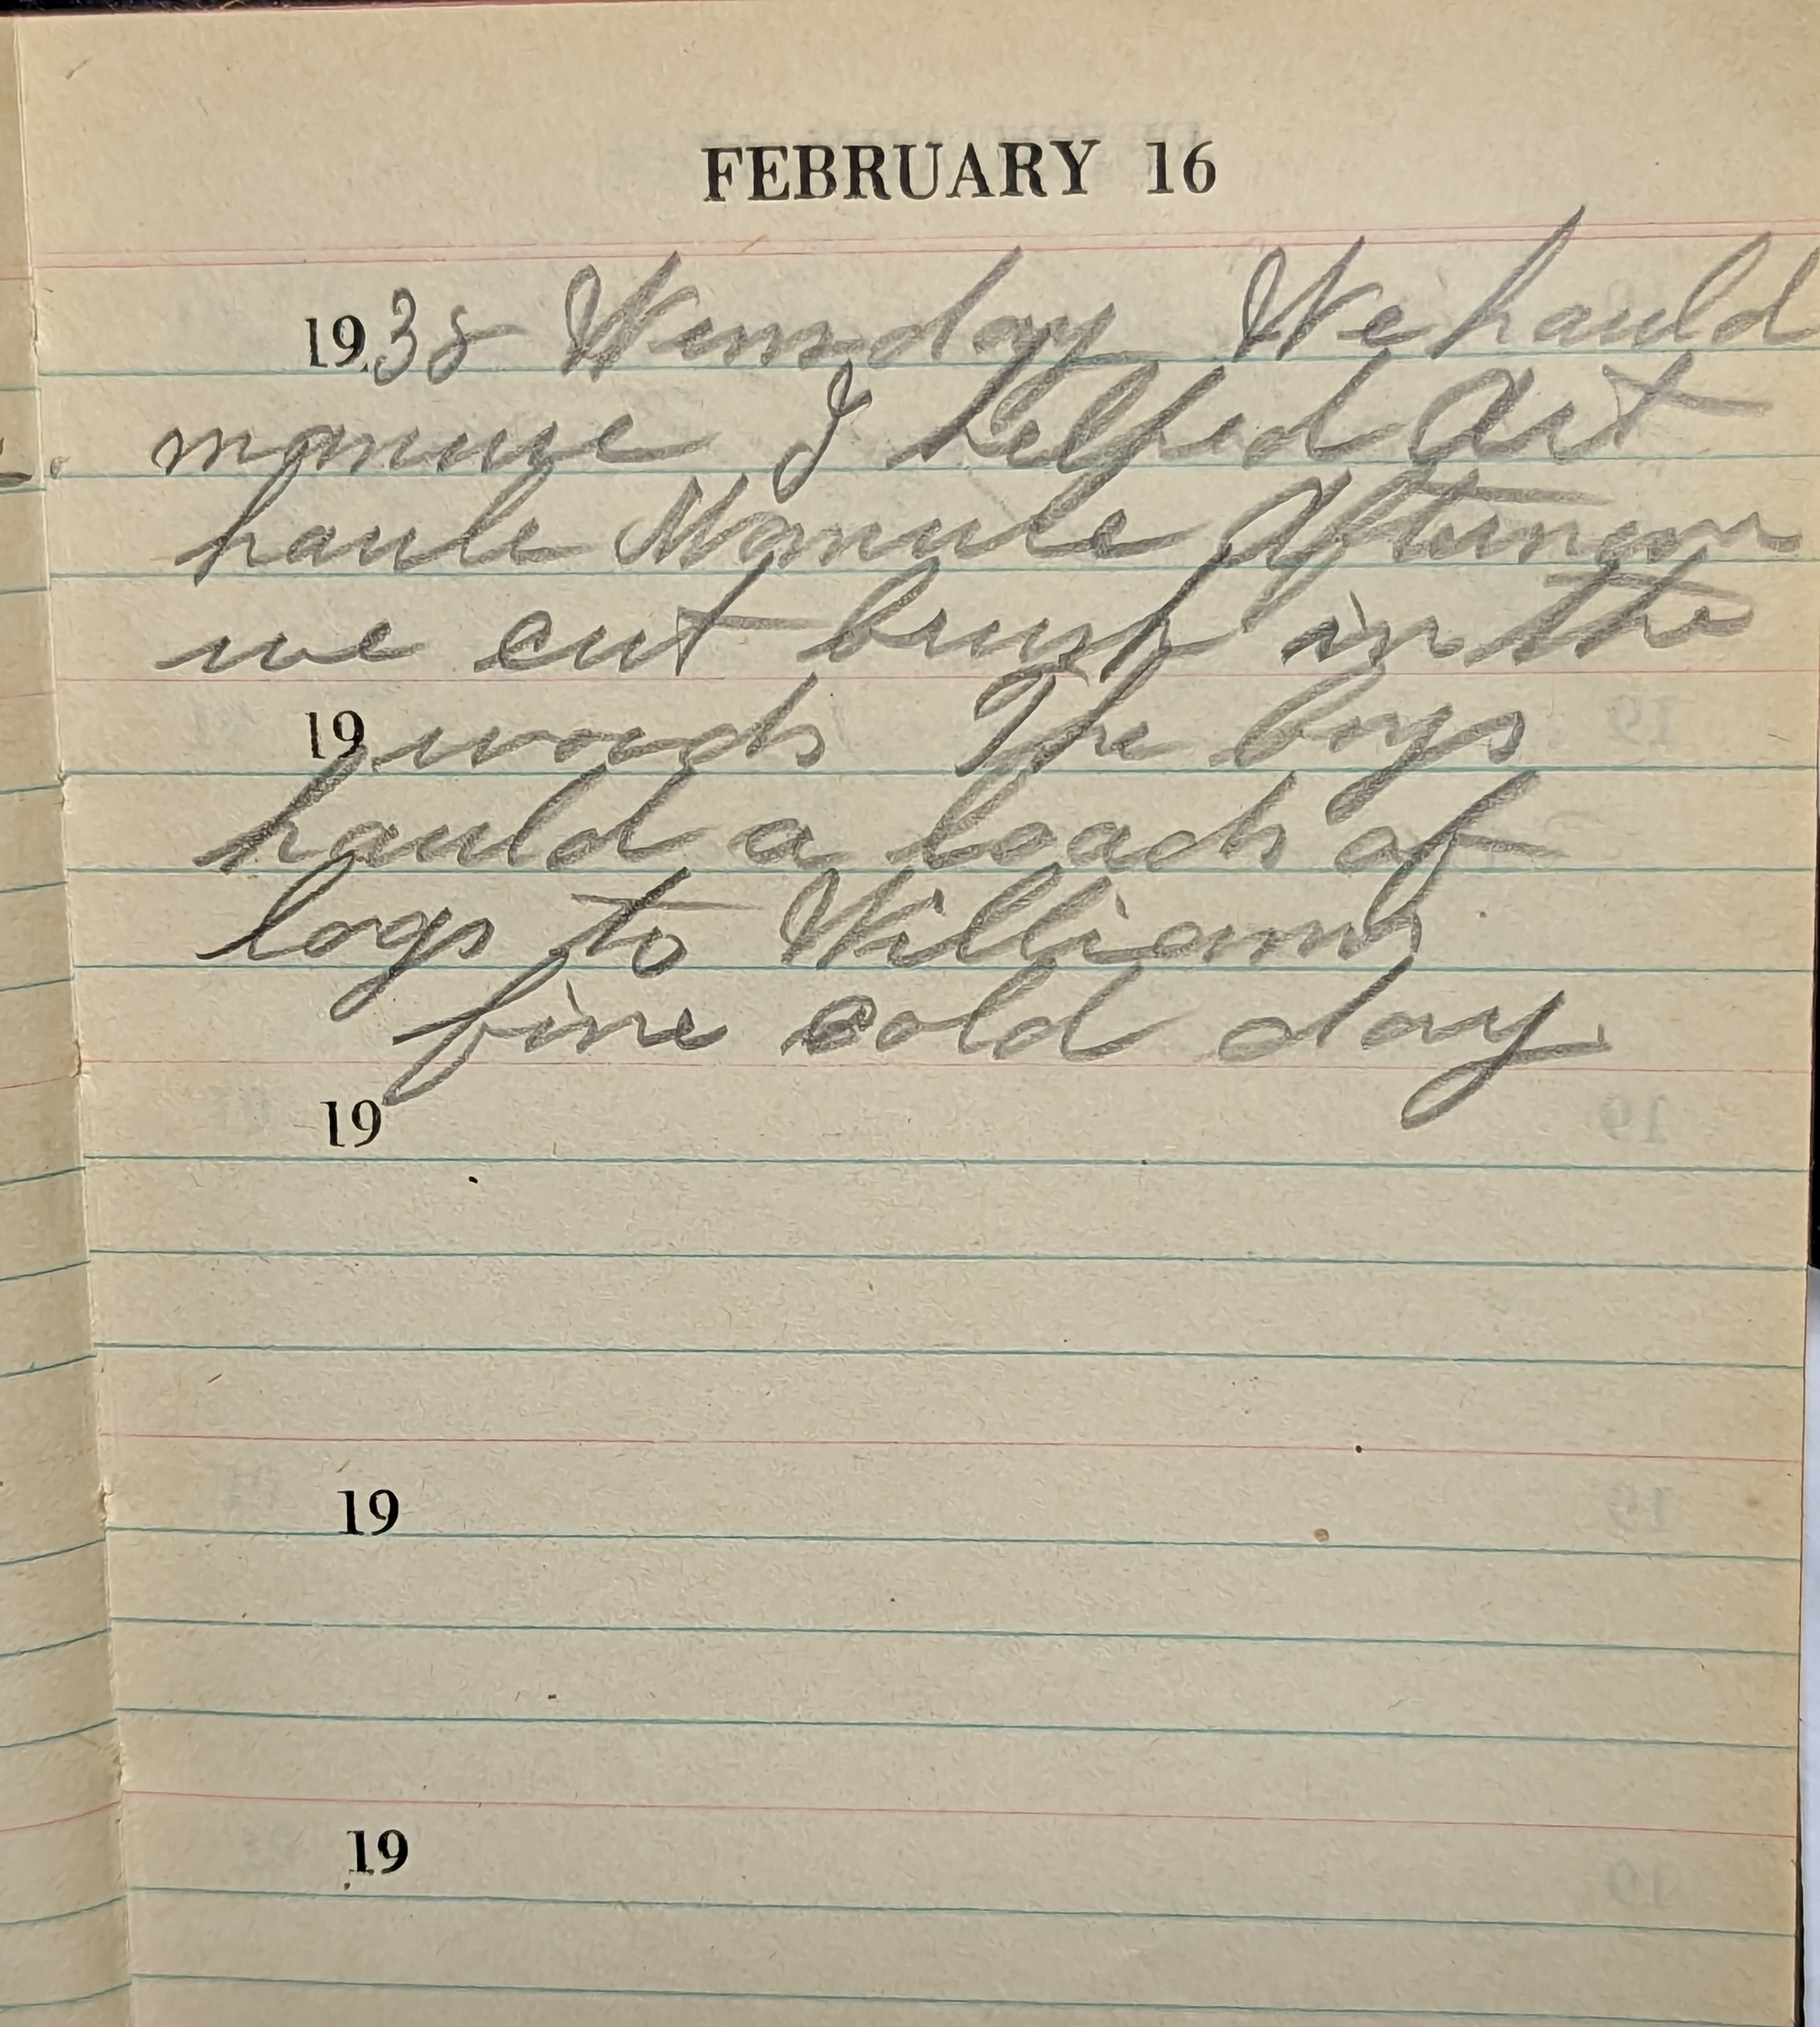 FEBRUARY 16
1938 Wensday We hauld
manure I helped Art
haule Manure Afternoon
we cut brush in the
19 woods The boys
hauld a loads of
logs to Williams
fine cold day
19
19
19